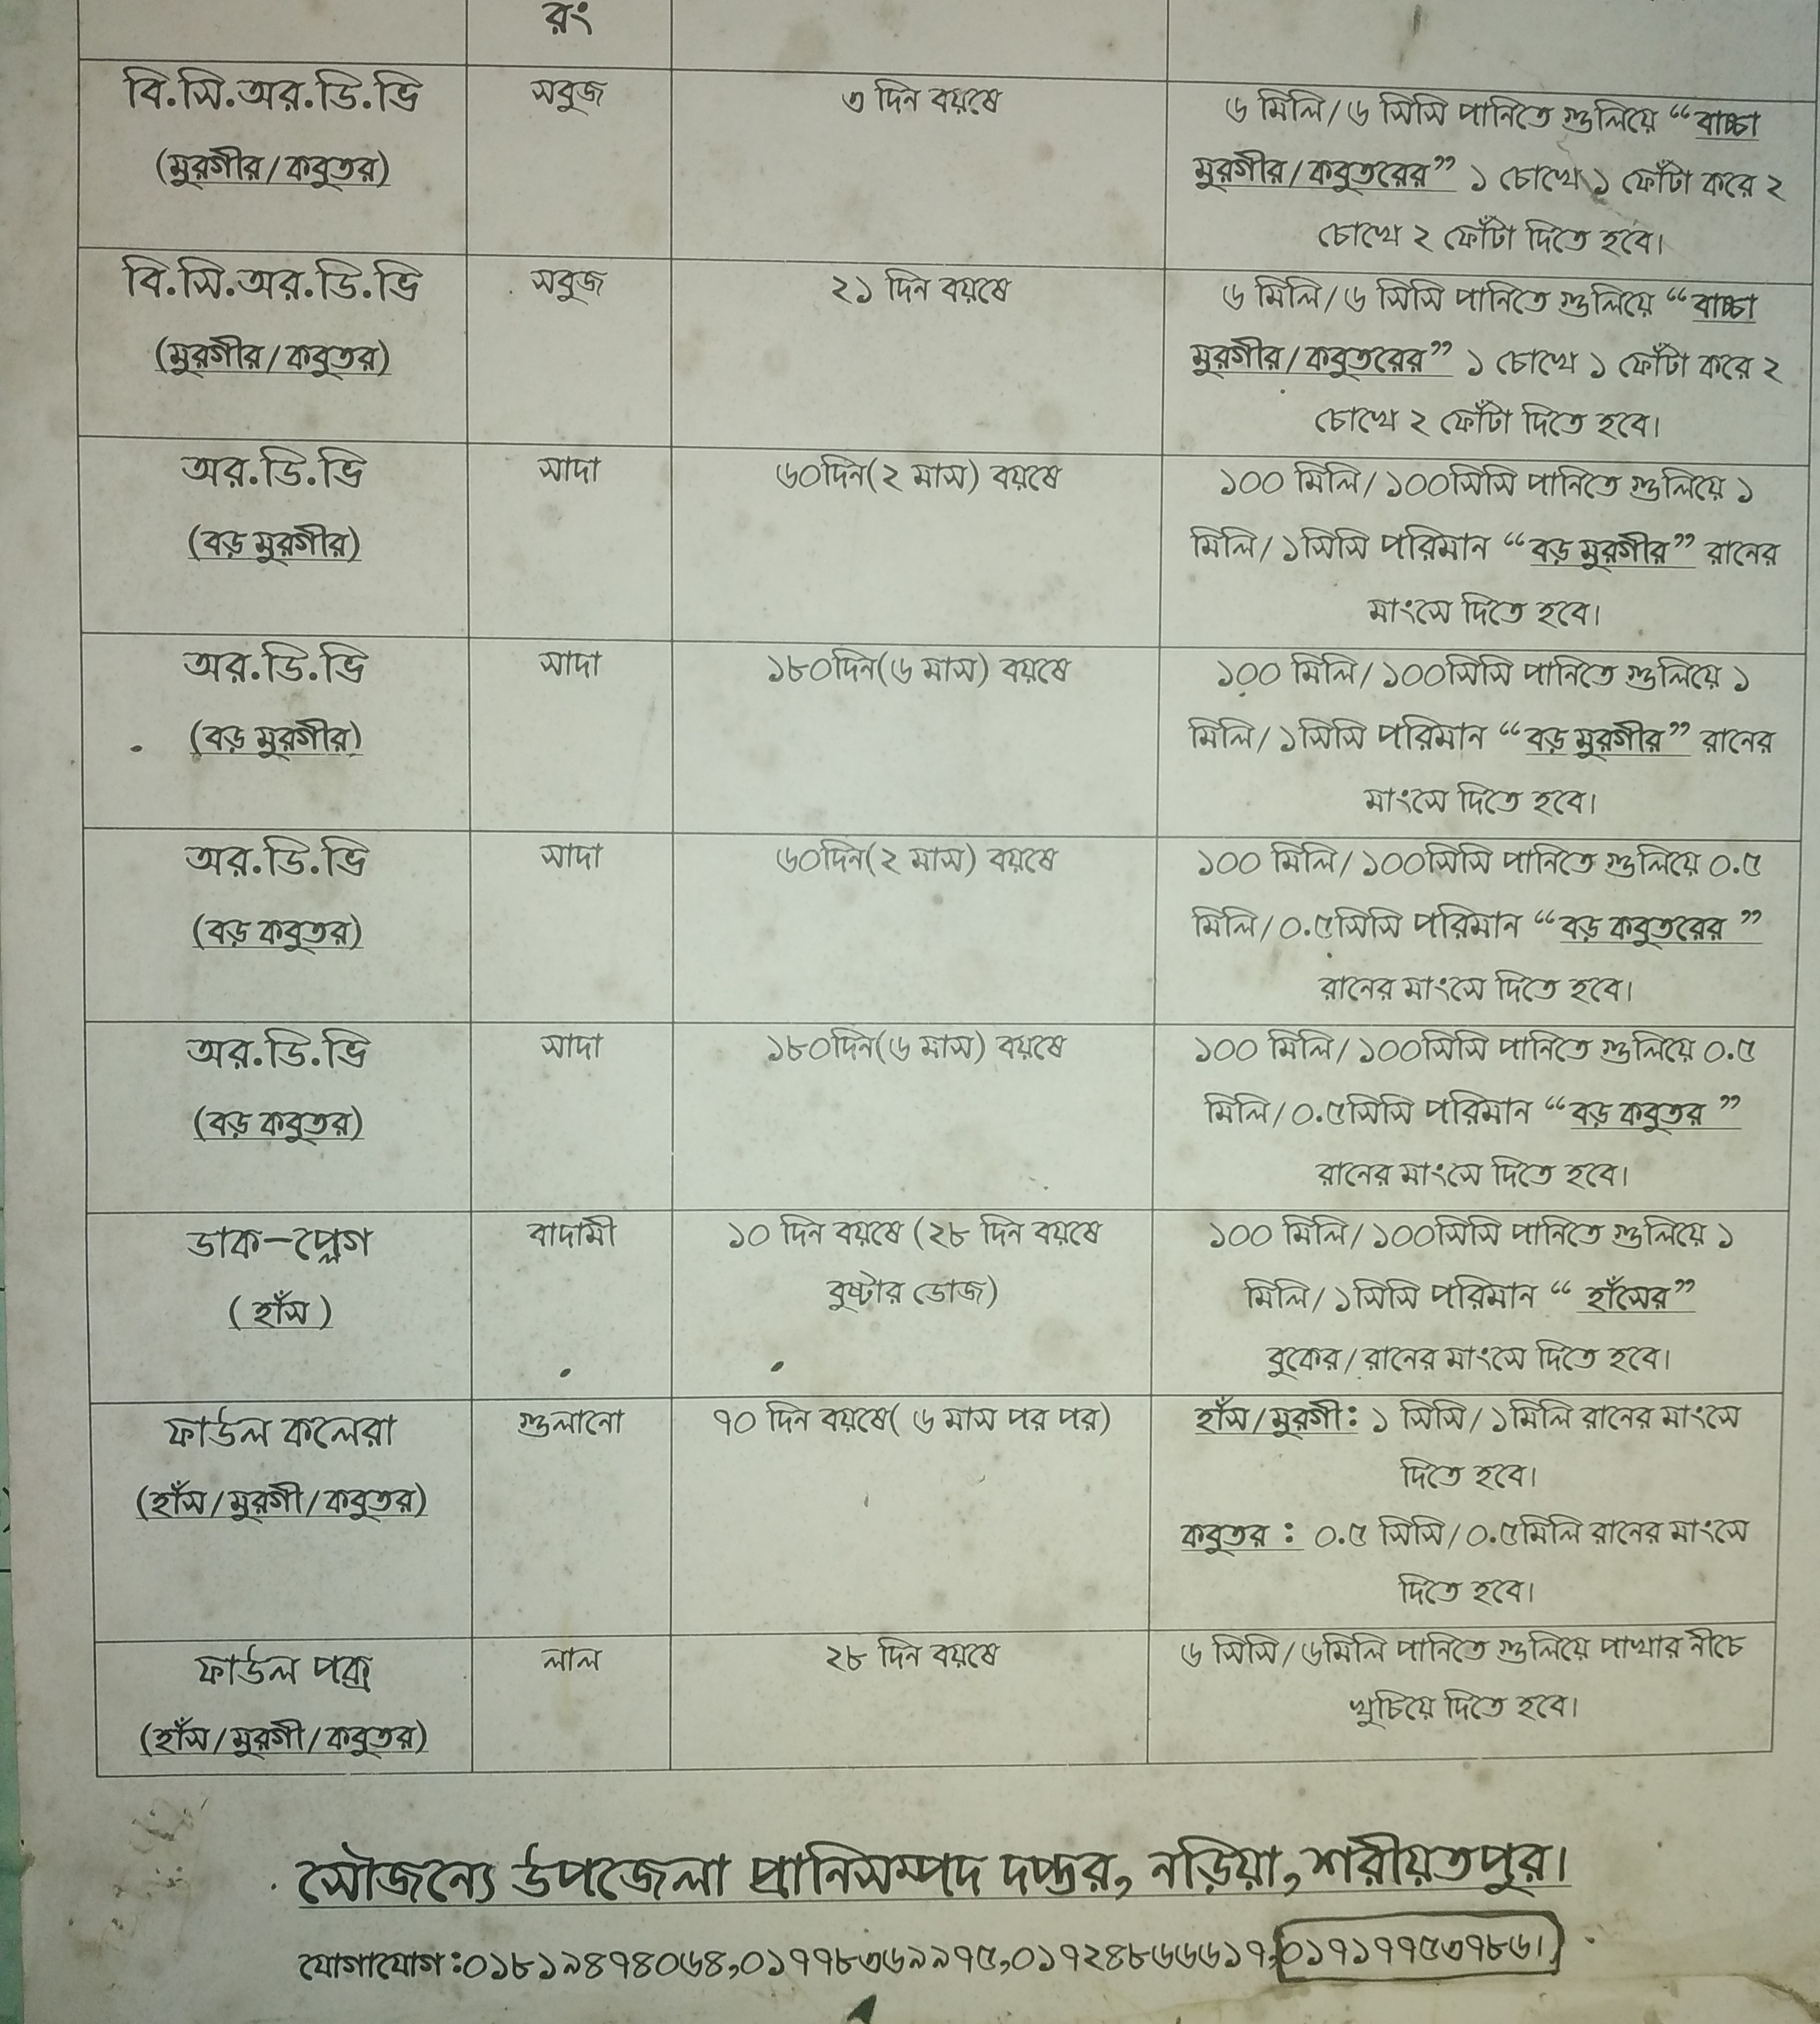 রং
বি.সি.অর.ডি.ভি
(মুরগীর/কবুতর)
সবুজ
৩ দিন বয়ষে
৬ মিলি/৬ সিসি পানিতে গুলিয়ে “বাচ্চা
মুরগীর/কবুতরের” ১ চোখে ১ ফোঁটা করে ২
চোখে ২ ফোঁটা দিতে হবে।
বি.সি.অর.ডি.ভি
(মুরগীর/কবুতর)
সবুজ
২১ দিন বয়ষে
৬ মিলি/৬ সিসি পানিতে গুলিয়ে “বাচ্চা
মুরগীর/কবুতরের” ১ চোখে ১ ফোঁটা করে ২
চোখে ২ ফোঁটা দিতে হবে।
অর.ডি.ভি
(বড় মুরগীর)
সাদা
৬০দিন(২ মাস) বয়ষে
১০০ মিলি/১০০সিসি পানিতে গুলিয়ে ১
মিলি/১সিসি পরিমান “বড় মুরগীর” রানের
মাংসে দিতে হবে।
অর.ডি.ভি
(বড় মুরগীর)
সাদা
১৮০দিন(৬ মাস) বয়ষে
১০০ মিলি/১০০সিসি পানিতে গুলিয়ে ১
মিলি/১সিসি পরিমান “বড় মুরগীর” রানের
মাংসে দিতে হবে।
অর.ডি.ভি
(বড় কবুতর)
সাদা
৬০দিন(২ মাস) বয়ষে
১০০ মিলি/১০০সিসি পানিতে গুলিয়ে ০.৫
মিলি/০.৫সিসি পরিমান “বড় কবুতরের ”
রানের মাংসে দিতে হবে।
অর.ডি.ভি
(বড় কবুতর)
সাদা
১৮০দিন(৬ মাস) বয়ষে
১০০ মিলি/১০০সিসি পানিতে গুলিয়ে ০.৫
মিলি/০.৫সিসি পরিমান “বড় কবুতর ”
রানের মাংসে দিতে হবে।
ডাক-প্লেগ
( হাঁস )
বাদামী
১০ দিন বয়ষে (২৮ দিন বয়ষে
বুষ্টার ডোজ)
১০০ মিলি/১০০সিসি পানিতে গুলিয়ে ১
মিলি/১সিসি পরিমান “ হাঁসের”
বুকের/রানের মাংসে দিতে হবে।
ফাউল কলেরা
(হাঁস/মুরগী/কবুতর)
গুলানো
৭০ দিন বয়ষে( ৬ মাস পর পর)
হাঁস/মুরগী: ১ সিসি/১মিলি রানের মাংসে
দিতে হবে।
কবুতর : ০.৫ সিসি/০.৫মিলি রানের মাংসে
দিতে হবে।
ফাউল পক্স
(হাঁস/মুরগী/কবুতর)
লাল
২৮ দিন বয়ষে
৬ সিসি/৬মিলি পানিতে গুলিয়ে পাখার নীচে
খুচিয়ে দিতে হবে।
সৌজন্যে উপজেলা প্রানিসম্পদ দপ্তর, নড়িয়া,শরীয়তপুর।
যোগাযোগ:০১৮১৯৪৭৪০৬৪,০১৭৭৮৩৬৯৯৭৫,০১৭২৪৮৬৬৬১৭,০১৭১৭৭৫৩৭৮৬।